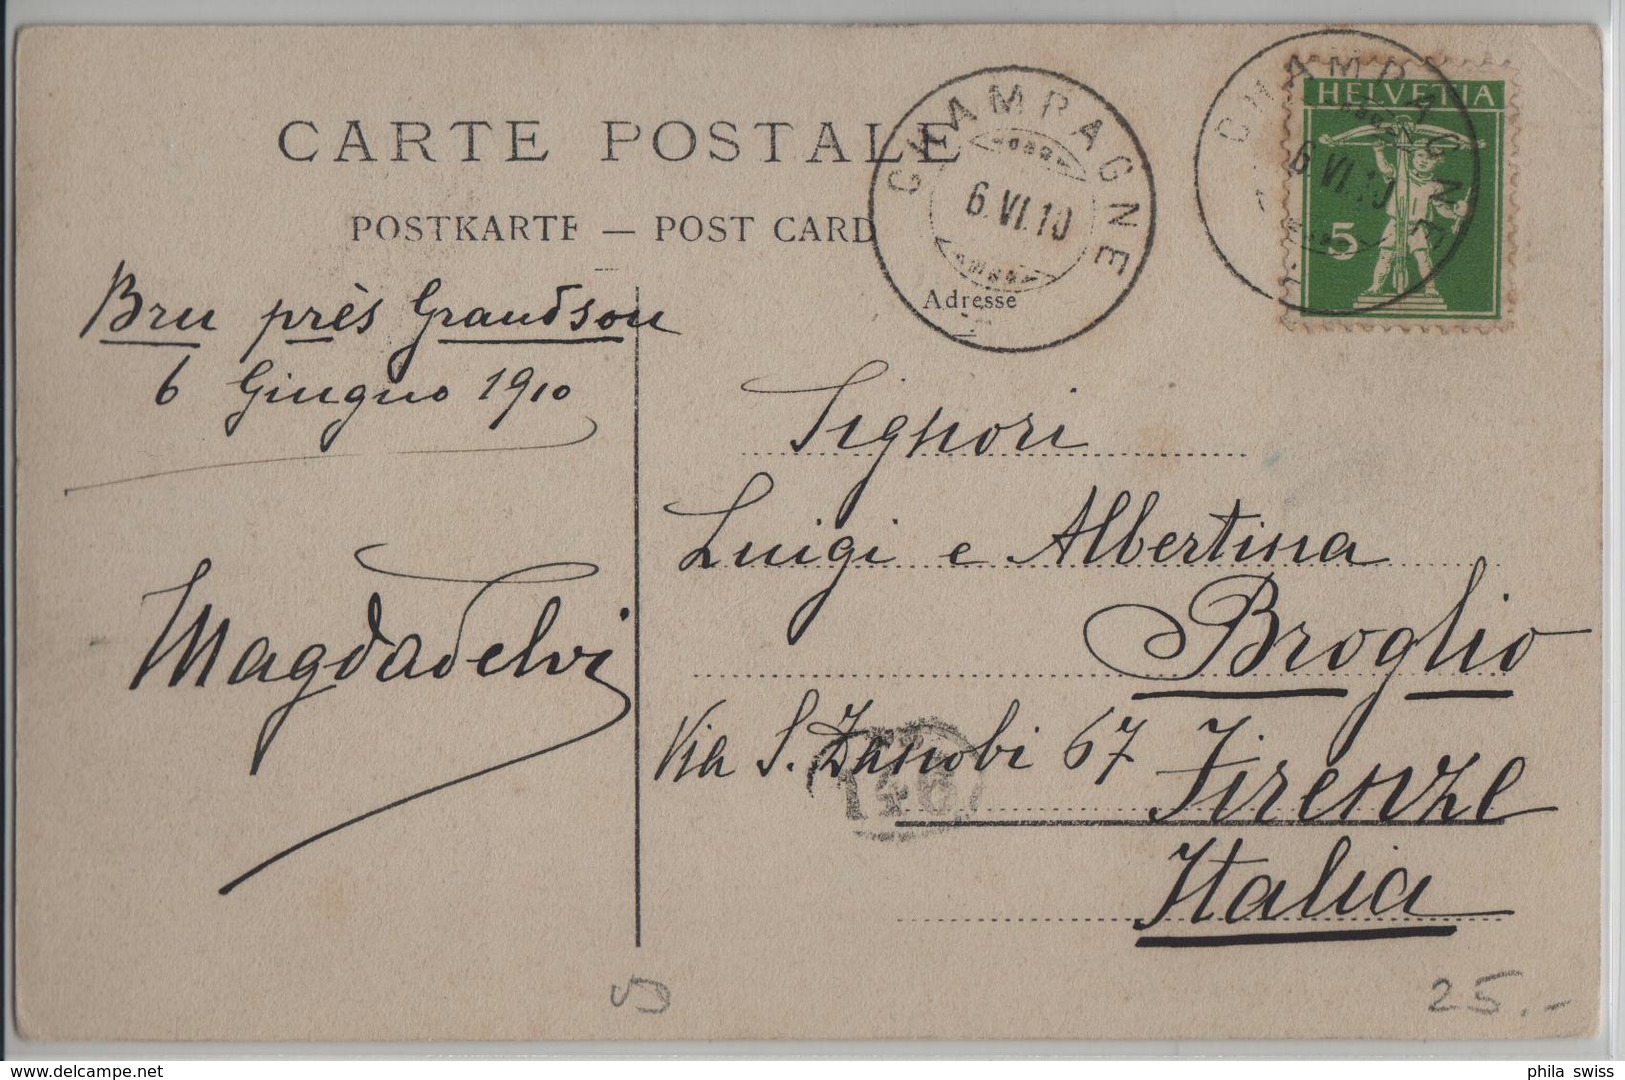 CARTE POSTALE
POSTKARTE — POST CARD
CHAMPAGNE
6.VI.10
CHAMPAGNE
6.VI.10
HELVETIA
5
Adresse
Bru près Grandson
6 Giugno 1910
Magda Delvi
Signori
Luigi e Albertina
Broglio
Via S. Zanobi 67
Firenze
Italia
25.-
delcampe.net
phila_swiss